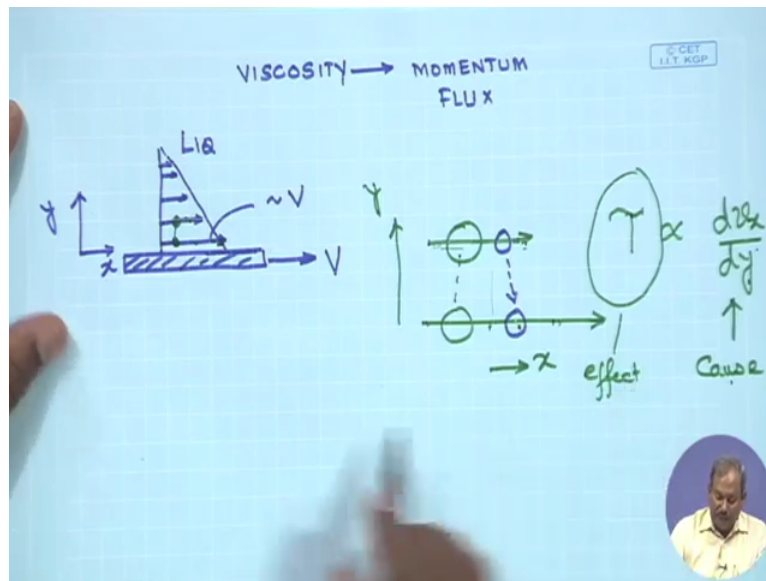 VISCOSITY → MOMENTUM
FLUX
© CET
I.I.T. KGP
LIQ
y
~V
x
V
y
x
τ ∝ dvx/dy
effect
Cause